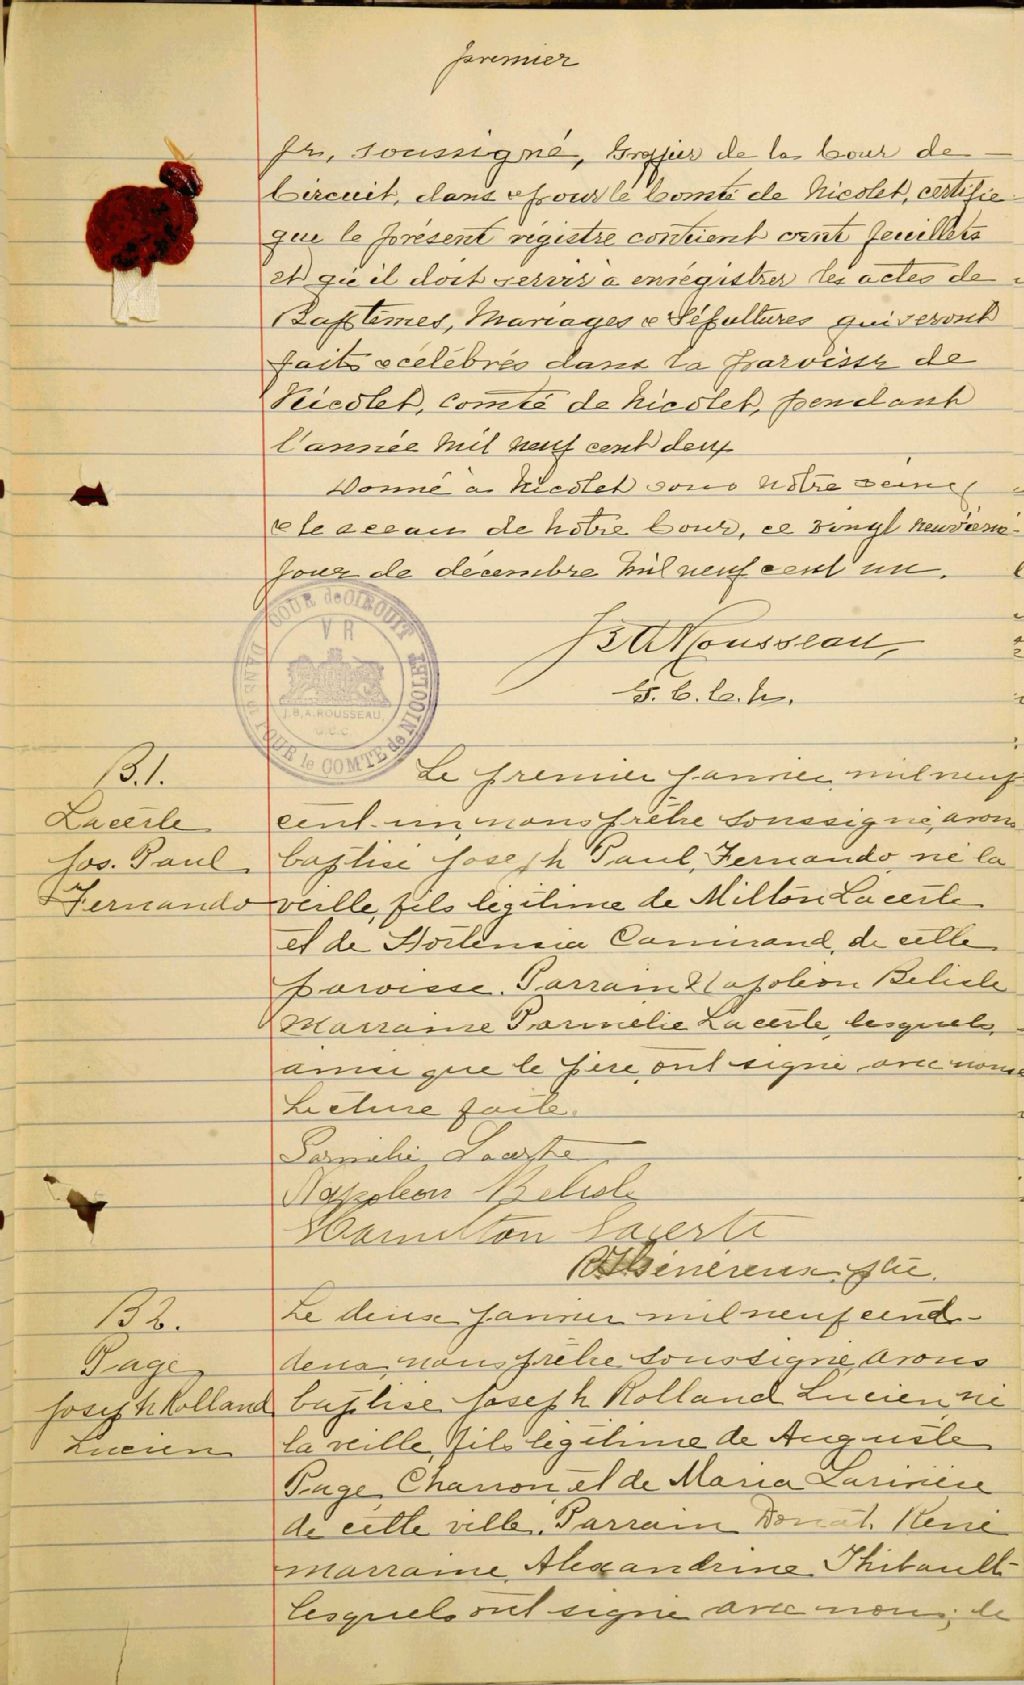 premier
Je, soussigné, Greffier de la Cour de
Circuit, dans & pour le Comté de Nicolet, certifie
que le présent régistre contient cent feuillets
et qu'il doit servir à enrégistrer les actes de
Baptêmes, Mariages & Sépultures qui seront
faits & célébrés dans la paroisse de
Nicolet, comté de Nicolet, pendant
l'année mil neuf cent deux
Donné à Nicolet sous notre seing
& le sceau de notre Cour, ce vingt neuvième
jour de décembre mil neuf cent un.
COUR de CIRCUIT DANS et POUR le COMTÉ de NICOLET
VR
J.B.A. ROUSSEAU
G.C.C.
JBARousseau,
G. C. C. N.
B.1.
Lacerte
Jos. Paul
Fernando
Le premier janvier, mil neuf
cent-un, nous prêtre soussigné, avons
baptisé Joseph Paul, Fernando, né la
veille, fils légitime de Milton Lacerte
et de Hortensia Camirand, de cette
paroisse. Parrain Napoléon Belisle
marraine Parmélie Lacerte, lesquels,
ainsi que le père, ont signé avec nous
Lecture faite.
Parmélie Lacerte
Napoléon Belisle
Hamilton Lacerte
Généreux, ptre.
B2.
Page
Joseph Rolland
Lucien
Le deux janvier mil neuf cent-
deux, nous prêtre soussigné, avons
baptisé Joseph Rolland Lucien, né
la veille, fils légitime de Auguste
Page, Charron, et de Maria Larivière
de cette ville. Parrain Donat René
marraine Alexandrine Thibault
lesquels ont signé avec nous; de